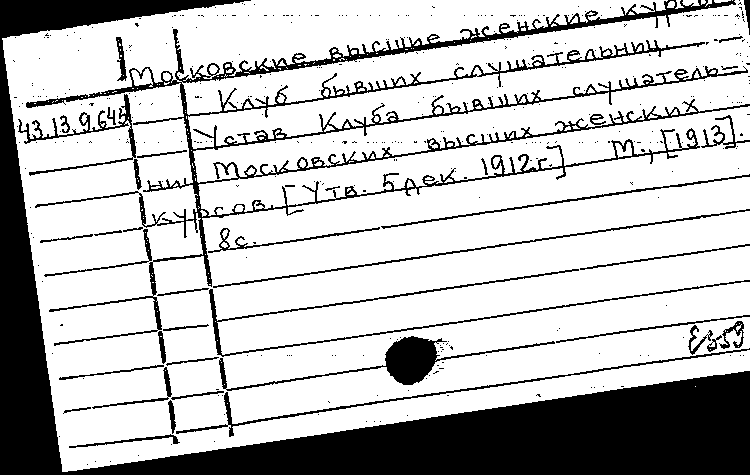 Московские высшие женские курсы
Клуб бывших слушательниц.
43.13.9.645
Устав Клуба бывших слушатель-
ниц Московских высших женских
курсов. [Утв. 5 дек. 1912г.]. М., [1913].
8с.